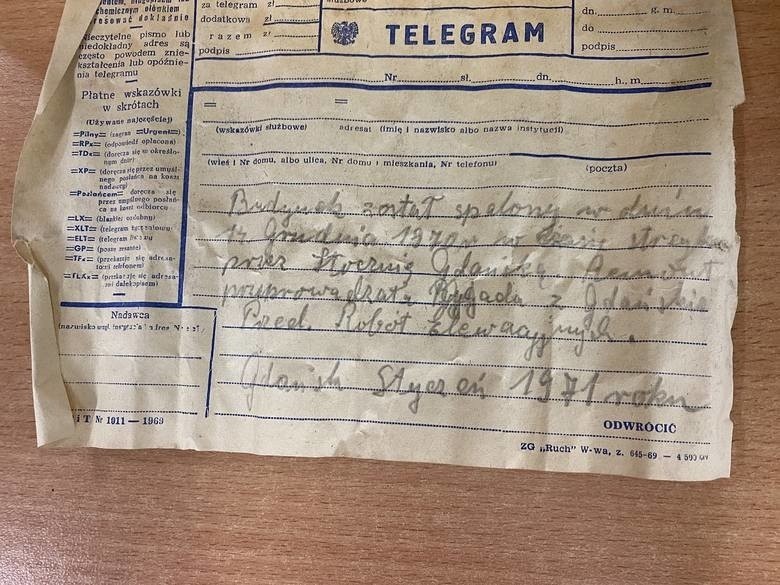 chemicznym ołówkiem
adresować dokładnie
Nieczytelne pismo lub
niedokładny adres są
często powodem znie-
kształcenia lub opóźnie-
nia telegramu
Płatne wskazówki
w skrótach
(Używane najczęściej)
=Pilny= (zagran. =Urgent=)
=RPx= (odpowiedź opłacona)
=TDx= (doręcza się w określo-
nym dniu)
=XP= (doręcza się przez umyśl-
nego posłańca na koszt
nadawcy)
=Posłańcem= doręcza się
przez umyślnego posłań-
ca na koszt odbiorcy
=LX= (blankiet ozdobny)
=XLT= (telegram
=ELT= (telegram
=GP= (poste restante)
=TFx= (przekazuje się adresa-
towi telefonem)
=TLXx= (przekazuje się adresa-
towi dalekopisem)
Nadawca
za telegram zł
dodatkowa zł
razem zł
podpis
służbowe
TELEGRAM
dn. g. m.
do
podpis
Nr sł. dn. h. m.
= =
(wskazówki służbowe) adresat (imię i nazwisko albo nazwa instytucji)
(wieś i Nr domu, albo ulica, Nr domu i mieszkania, Nr telefonu) (poczta)
Budynek został spalony w dniu
14 Grudnia 1970 w czasie
przez Stocznię Gdańską. Remont
Brygada z Gdańskie
Przed. Robót Elewacyjnych.
Gdańsk Styczeń 1971 roku
ODWRÓCIĆ
T Nr 1011 — 1969
ZG „Ruch" W-wa, z. 645-69 —